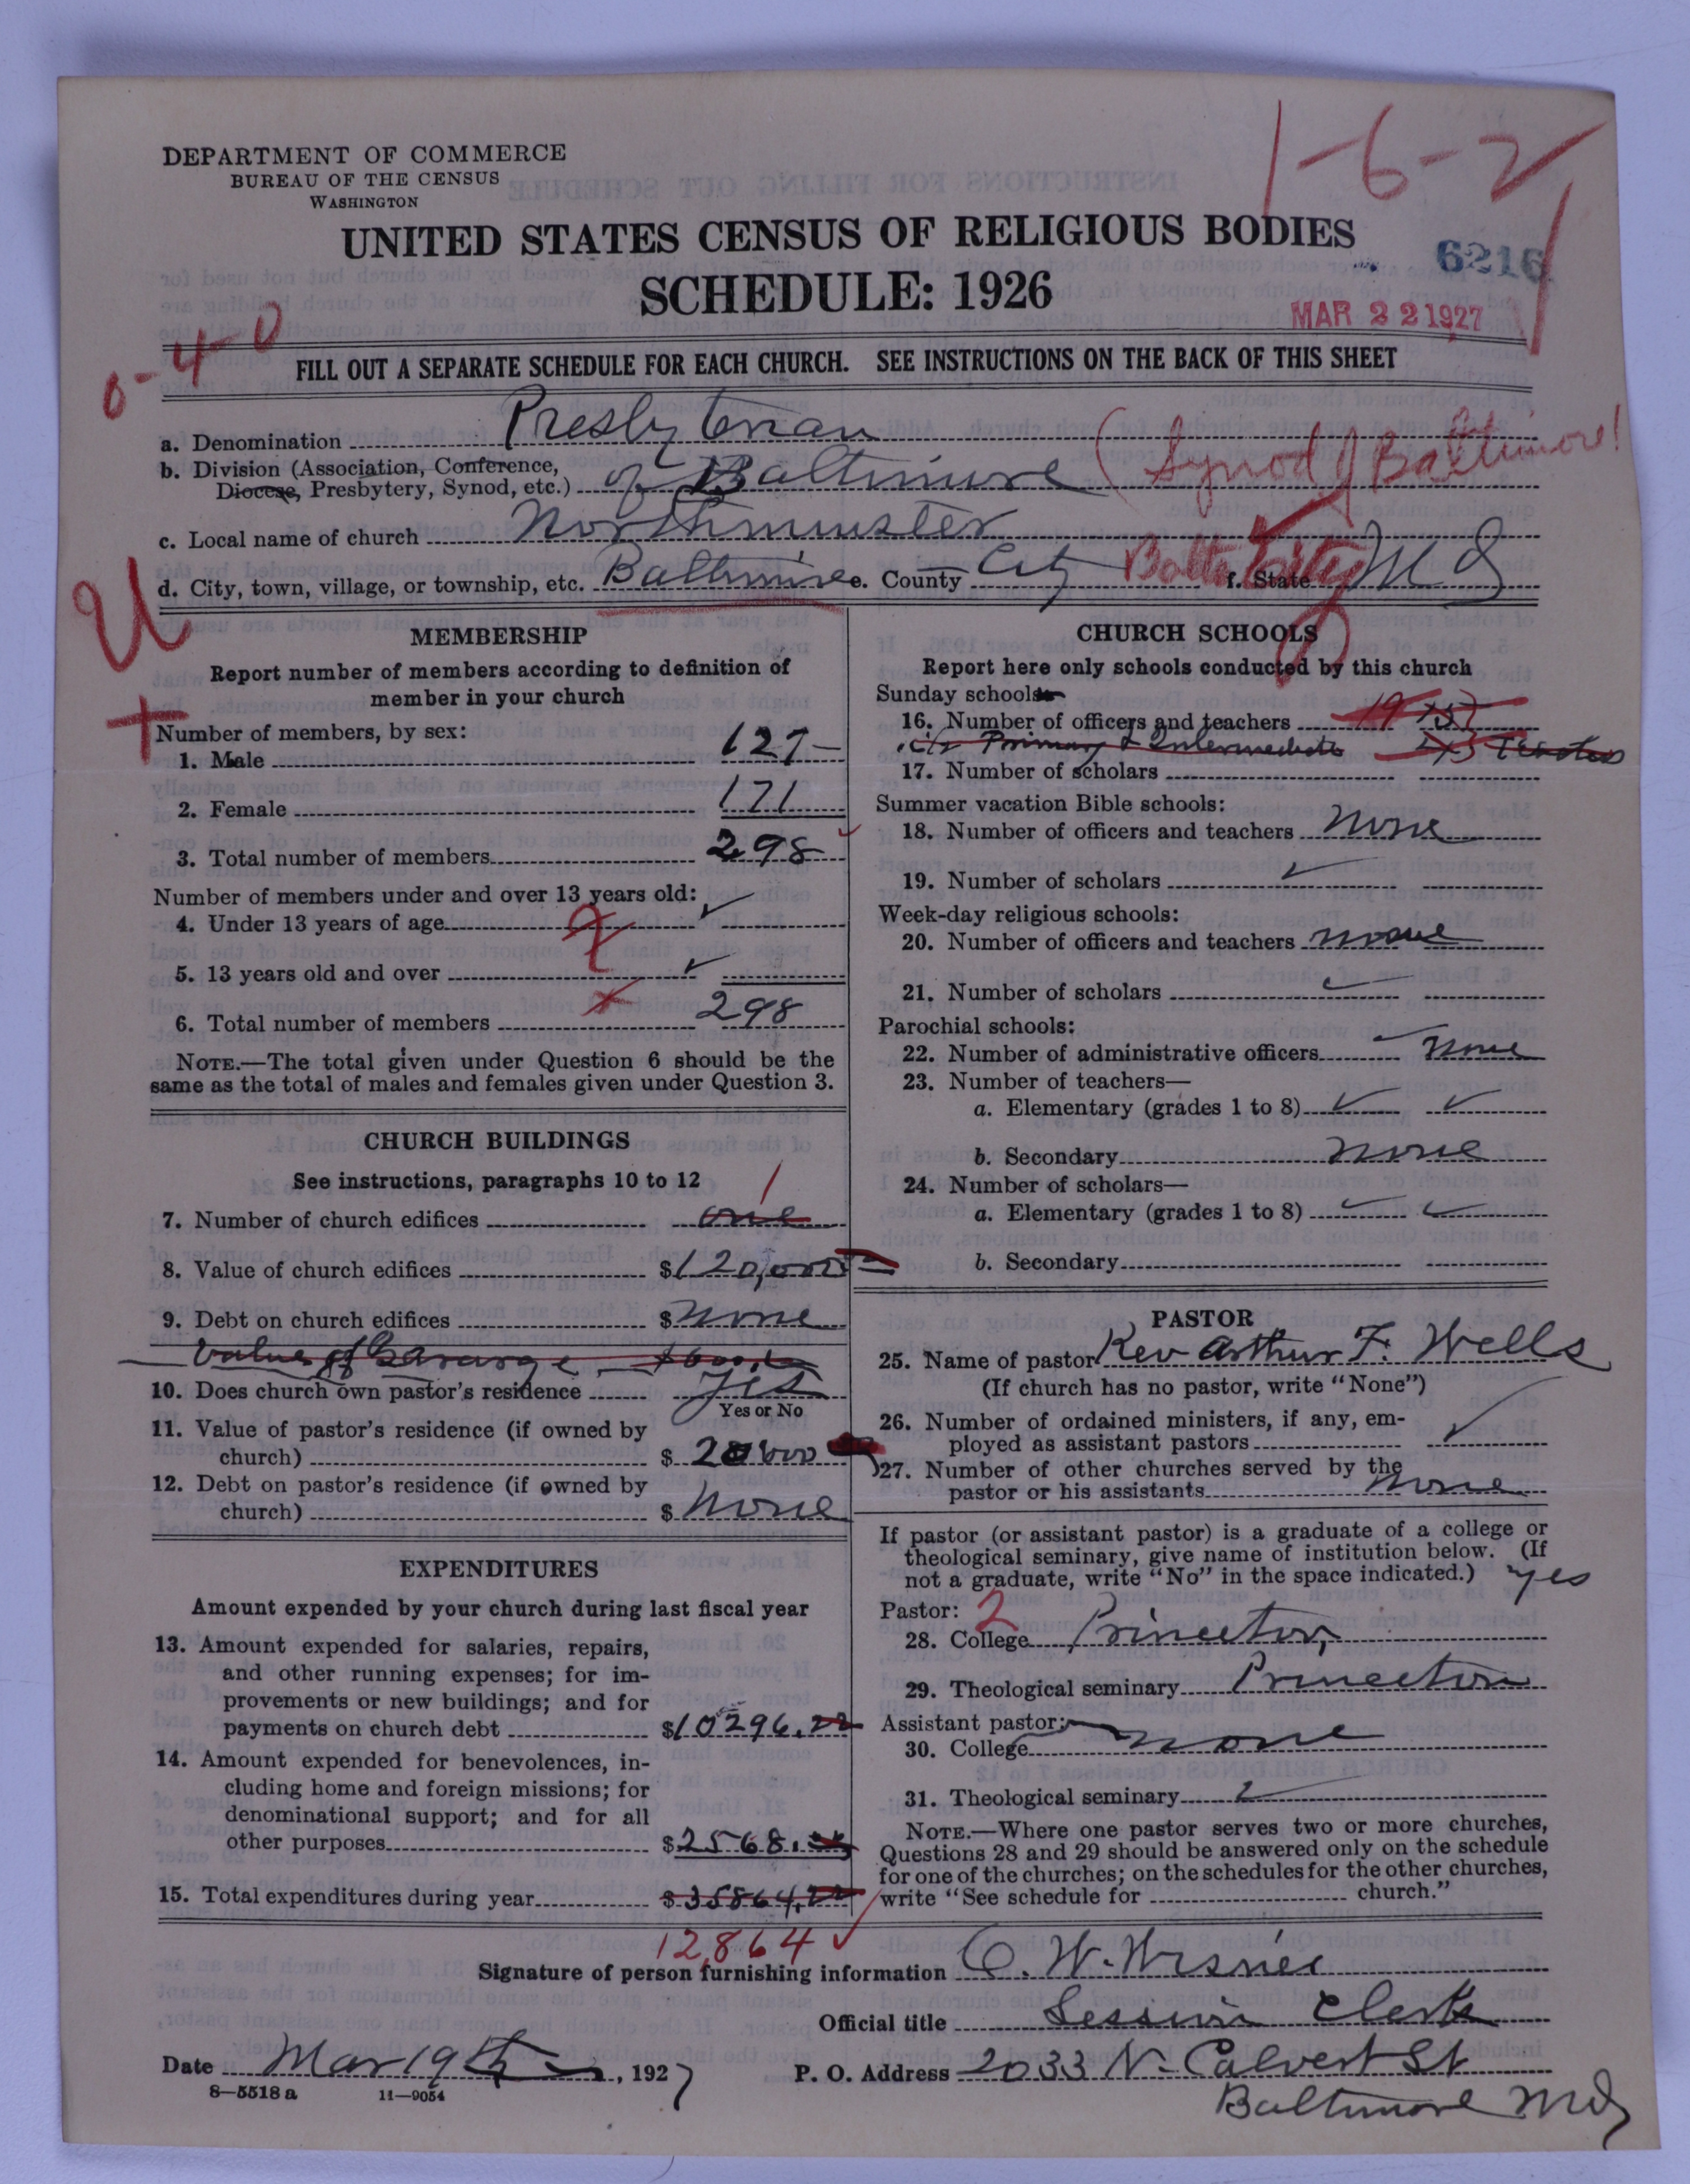 1-6-2
DEPARTMENT OF COMMERCE
BUREAU OF THE CENSUS
WASHINGTON
UNITED STATES CENSUS OF RELIGIOUS BODIES
SCHEDULE: 1926
6216
MAR 22 1927
0-4-0
FILL OUT A SEPARATE SCHEDULE FOR EACH CHURCH. SEE INSTRUCTIONS ON THE BACK OF THIS SHEET
a. Denomination Presbyterian
b. Division (Association, Conference, Diocese, Presbytery, Synod, etc.) of Baltimore (Synod of Baltimore)
c. Local name of church Northminster
d. City, town, village, or township, etc. Baltimore e. County City Balto City f. State Md
U
+
MEMBERSHIP
Report number of members according to definition of
member in your church
Number of members, by sex:
1. Male 127
2. Female 171
3. Total number of members 298
Number of members under and over 13 years old:
4. Under 13 years of age
5. 13 years old and over
6. Total number of members 298
NOTE.—The total given under Question 6 should be the
same as the total of males and females given under Question 3.
CHURCH BUILDINGS
See instructions, paragraphs 10 to 12
7. Number of church edifices one 1
8. Value of church edifices $120,000
9. Debt on church edifices $ none
Value of Garage
10. Does church own pastor's residence Yes
Yes or No
11. Value of pastor's residence (if owned by
church) $
12. Debt on pastor's residence (if owned by
church) $ None
EXPENDITURES
Amount expended by your church during last fiscal year
13. Amount expended for salaries, repairs,
and other running expenses; for im-
provements or new buildings; and for
payments on church debt $10296.22
14. Amount expended for benevolences, in-
cluding home and foreign missions; for
denominational support; and for all
other purposes $2568.
15. Total expenditures during year $35864.22
12,864
CHURCH SCHOOLS
Report here only schools conducted by this church
Sunday schools
16. Number of officers and teachers 19
Primary & Intermediate
17. Number of scholars
Summer vacation Bible schools:
18. Number of officers and teachers None
19. Number of scholars
Week-day religious schools:
20. Number of officers and teachers none
21. Number of scholars
Parochial schools:
22. Number of administrative officers None
23. Number of teachers—
a. Elementary (grades 1 to 8)
b. Secondary None
24. Number of scholars—
a. Elementary (grades 1 to 8)
b. Secondary
PASTOR
25. Name of pastor Rev Arthur F. Wells
(If church has no pastor, write "None")
26. Number of ordained ministers, if any, em-
ployed as assistant pastors
27. Number of other churches served by the
pastor or his assistants None
If pastor (or assistant pastor) is a graduate of a college or
theological seminary, give name of institution below. (If
not a graduate, write "No" in the space indicated.) Yes
Pastor: 2
28. College Princeton
29. Theological seminary Princeton
Assistant pastor:
30. College none
31. Theological seminary
NOTE.—Where one pastor serves two or more churches,
Questions 28 and 29 should be answered only on the schedule
for one of the churches; on the schedules for the other churches,
write "See schedule for church."
Signature of person furnishing information
Official title Session Clerk
Date Mar 19th, 1927
P. O. Address 2033 N. Calvert St
Baltimore Md
8—5518 a 11—9054